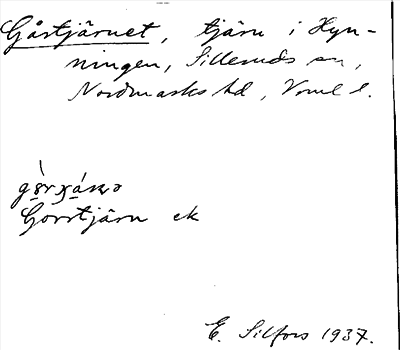 Gårtjärnet, tjärn i Hyn-
ningen, Silleruds sn,
Nordmarks hd, Vrml l.
Gorrtjärn ek
E. Silfors 1937.